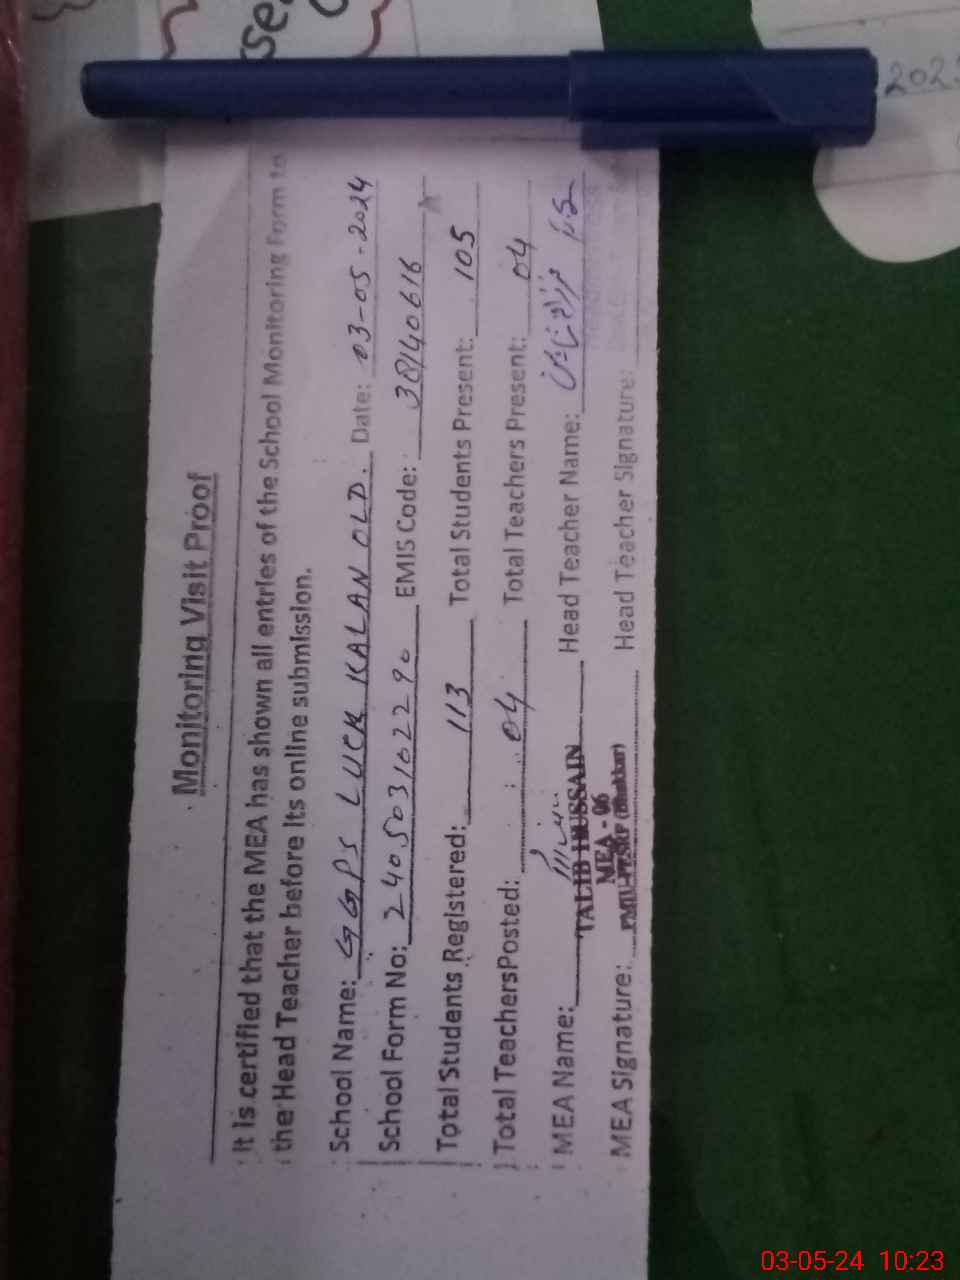 Monitoring Visit Proof
It is certified that the MEA has shown all entries of the School Monitoring Form to
the Head Teacher before its online submission.
School Name: GGPS LUCK KALAN OLD. Date: 03-05-2024
School Form No: 240503102290 EMIS Code: 38140616
Total Students Registered: 113 Total Students Present: 105
Total Teachers Posted: 04 Total Teachers Present: 04
MEA Name: Head Teacher Name:
TALIB HUSSAIN
MEA - 06
MEA Signature: PMIU-PESRP (Bhakkar) Head Teacher Signature:
2023
03-05-24 10:23